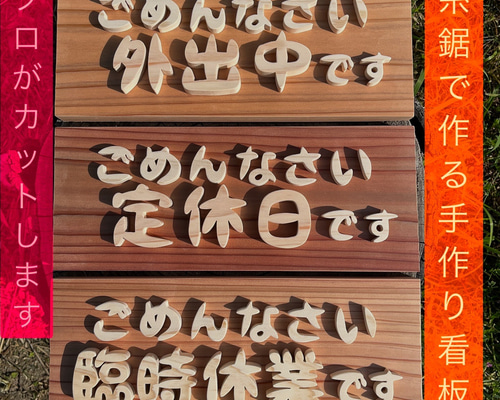 ごめんなさい
外出中です
ごめんなさい
定休日です
ごめんなさい
臨時休業です
糸鋸で作る手作り看板
プロがカットします